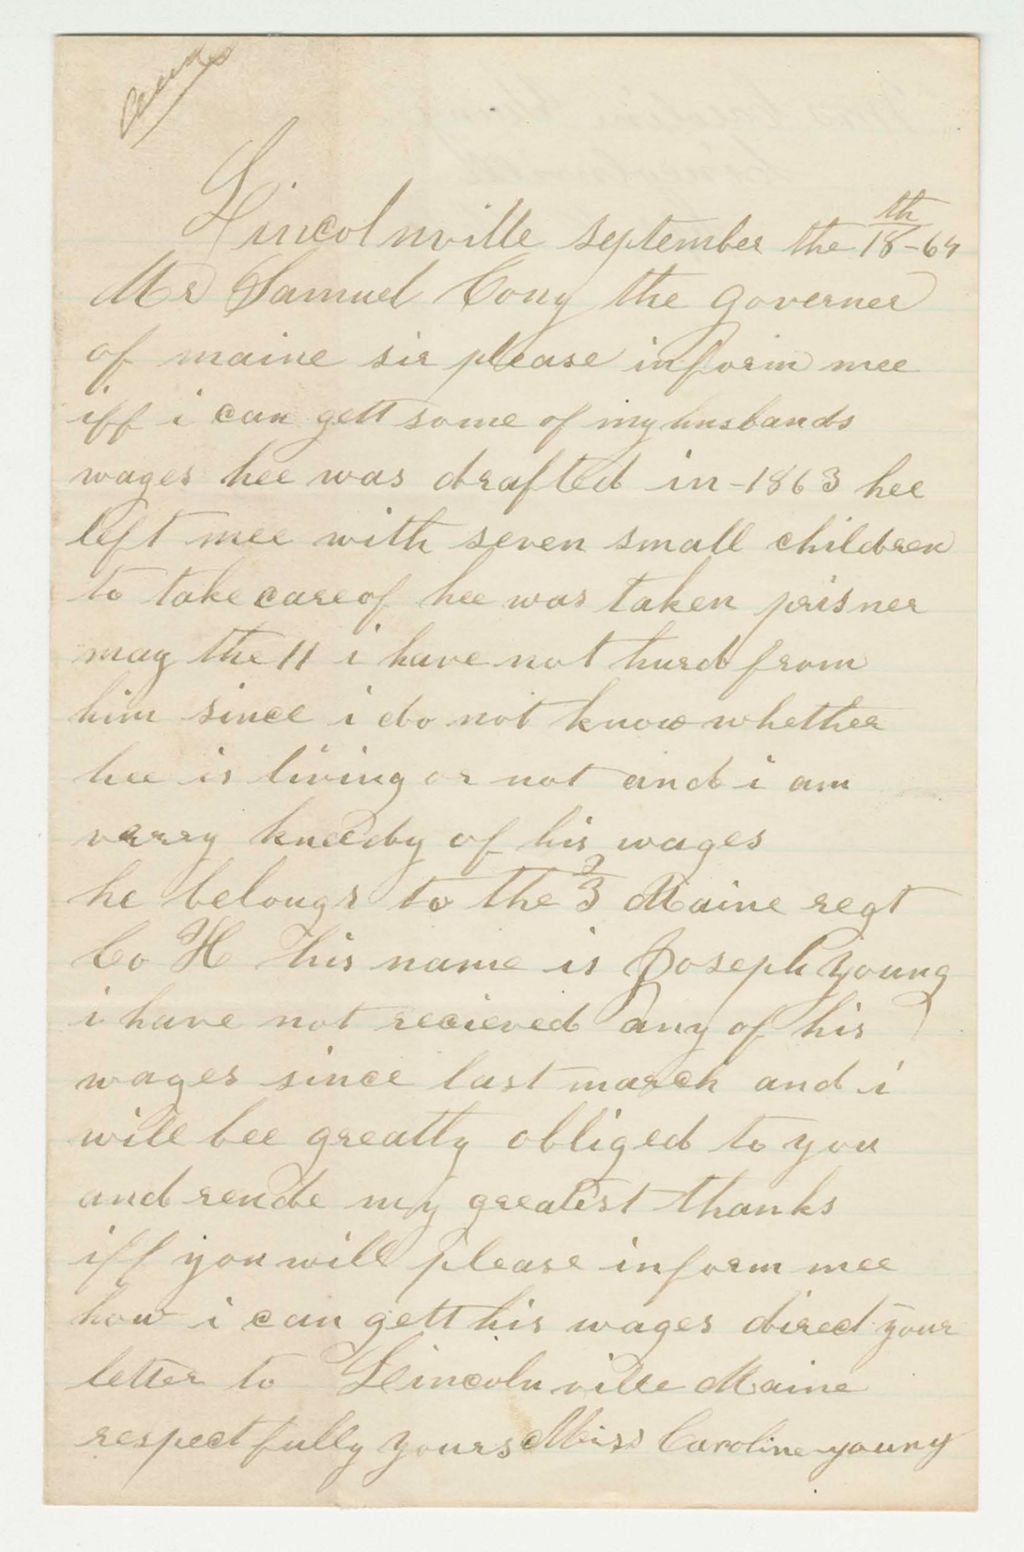 Ansd
Lincolnville september the 18th-64
Mr Samuel Cony the governer
of maine sir please inform mee
iff i can gett some of my husbands
wages hee was drafted in-1863 hee
left mee with seven small children
to take care of hee was taken prisner
may the 11 i have not hurd from
him since i do not know whether
hee is living or not and i am
verry kneedy of his wages
he belongs to the 3 Maine regt
Co H his name is Joseph Young
i have not recieved any of his
wages since last march and i
will bee greatly obliged to you
and rende my greatest thanks
iff you will please inform mee
how i can gett his wages direct your
letter to Lincolnville Maine
respectfully yours Miss Caroline young